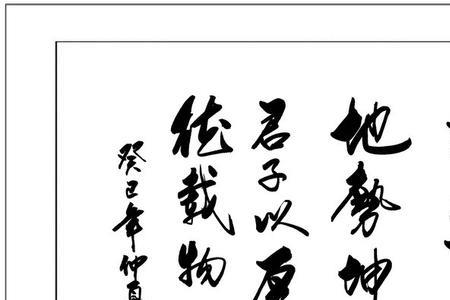 地勢坤
君子以厚
德載物
癸巳年仲夏